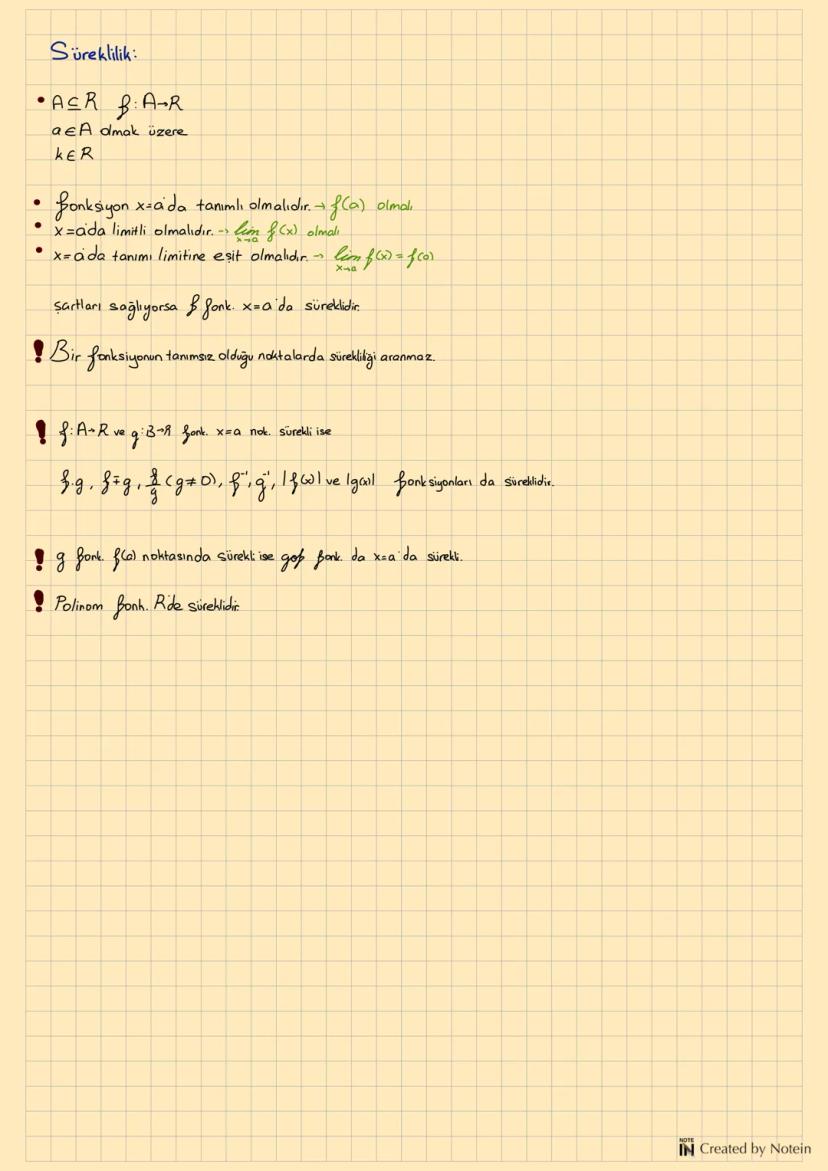 Süreklilik:
• A⊆R f: A→R
a∈A olmak üzere
k∈R
• fonksiyon x=a'da tanımlı olmalıdır. → f(a) olmalı
• x=a'da limitli olmalıdır. → lim x→a f(x) olmalı
• x=a'da tanımı limitine eşit olmalıdır. → lim x→a f(x) = f(a)
şartları sağlıyorsa f fonk. x=a'da süreklidir.
! Bir fonksiyonun tanımsız olduğu noktalarda sürekliliği aranmaz.
! f: A→R ve g: B→R fonk. x=a nok. sürekli ise
f.g, f∓g, f/g (g≠0), f⁻¹, g⁻¹, |f(x)| ve |g(x)| fonksiyonları da süreklidir.
! g fonk. f(a) noktasında sürekli ise gof fonk. da x=a'da sürekli.
! Polinom fonk. R'de süreklidir.
NOTE IN Created by Notein